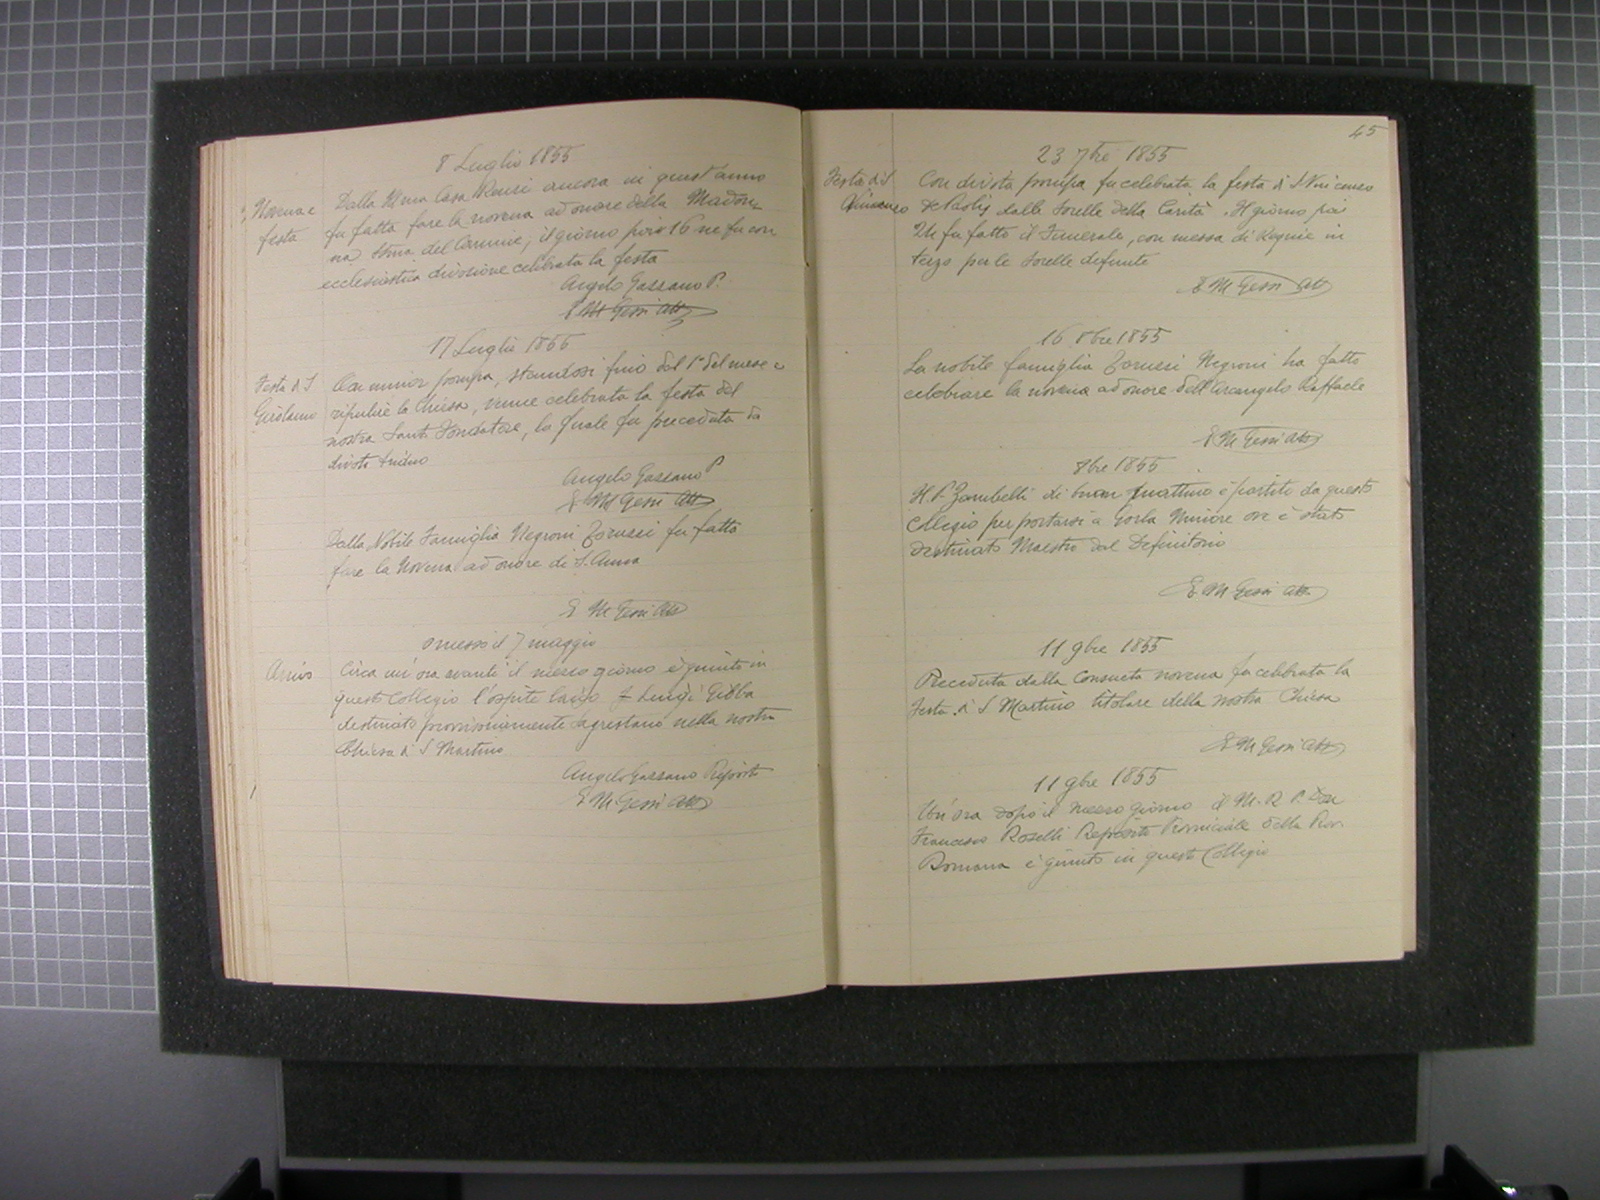 8 Luglio 1855
Novena e
festa
Dalla Casa ancora in quest'anno
fu fatta fare la novena ad onore della Madon
na del Carmine, il giorno poi 16 ne fu con
ecclesiastica divozione celebrata la festa
Angelo Gassano P.
E M Gessi Att
17 Luglio 1855
Festa di S
Girolamo
Con minor pompa, standosi fino dal 1° del mese a
ripulire la Chiesa, venne celebrata la festa del
nostro Santo Fondatore, la quale fu preceduta da
divoto triduo
Angelo Gassano P
E M Gessi Att
Dalla Nobile Famiglia Negroni Zorusi fu fatta
fare la Novena ad onore di S. Anna
E M Gessi Att
omesso il 7 maggio
Arrivo
Circa un'ora avanti il mezzo giorno è giunto in
questo Collegio l'ospite laico F Luigi Gibba
destinato provvisoriamente sagrestano nella nostra
Chiesa di S Martino
Angelo Gassano Preposto
E M Gessi Att
45
23 7bre 1855
Festa di S
Vincenzo
Con divota pompa fu celebrata la festa di S Vincenzo
de Paolis dalle Sorelle della Carità. Il giorno poi
24 fu fatto il Funerale, con messa di Requie in
terzo per le Sorelle defunte
E M Gessi Att
16 8bre 1855
La nobile famiglia Zorusi Negroni ha fatto
celebrare la novena ad onore dell'Arcangelo Raffaele
E M Gessi Att
8bre 1855
Il P. Zambelli di buon mattino è partito da questo
Collegio per portarsi a Gorla Minore ove è stato
destinato Maestro dal Definitorio
E M Gessi Att
11 9bre 1855
Preceduta dalla Consueta novena fu celebrata la
festa di S Martino titolare della nostra Chiesa
E M Gessi Att
11 9bre 1855
Un'ora dopo il mezzo giorno il M. R. P. Don
Francesco Roselli Preposito Provinciale della Prov.
Romana è giunto in questo Collegio